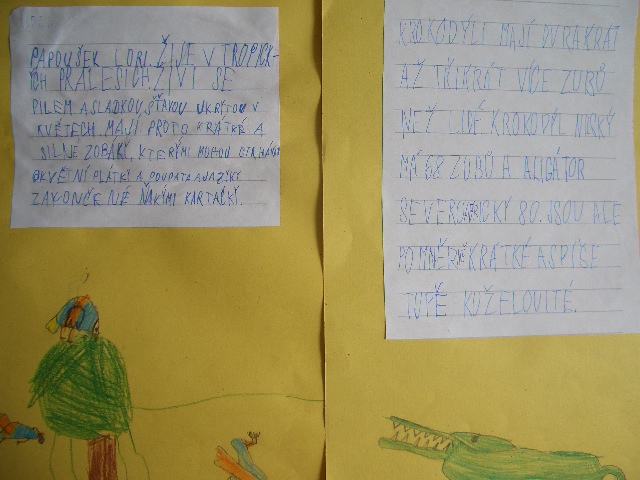 PAPOUŠEK LORI ŽIJE V TROPICK-
ÝCH PRALESÍCH. ŽIVÍ SE
PILEM A SLADKOU ŠŤÁVOU UKRYTOU V
KVĚTECH. MAJÍ PROTO KRÁTKÉ A
SILNÉ ZOBÁKY, KTERÝMI MOHOU
OKVĚTNÍ PLÁTKY A POUPATA A JAZYKY
ZAKONČENÉ ŇAKÝMI KARTÁČKY.
KROKODÝLI MAJÍ DVRAKRÁT
AŽ TŘIKRÁT VÍCE ZUBŮ
NEŽ LIDÉ KROKODÝL NILSKÝ
MÁ 68 ZUBŮ A ALIGÁTOR
80. JSOU ALE
KRÁTKÉ A SPÍŠE
TUPĚ KUŽELOVITÉ.